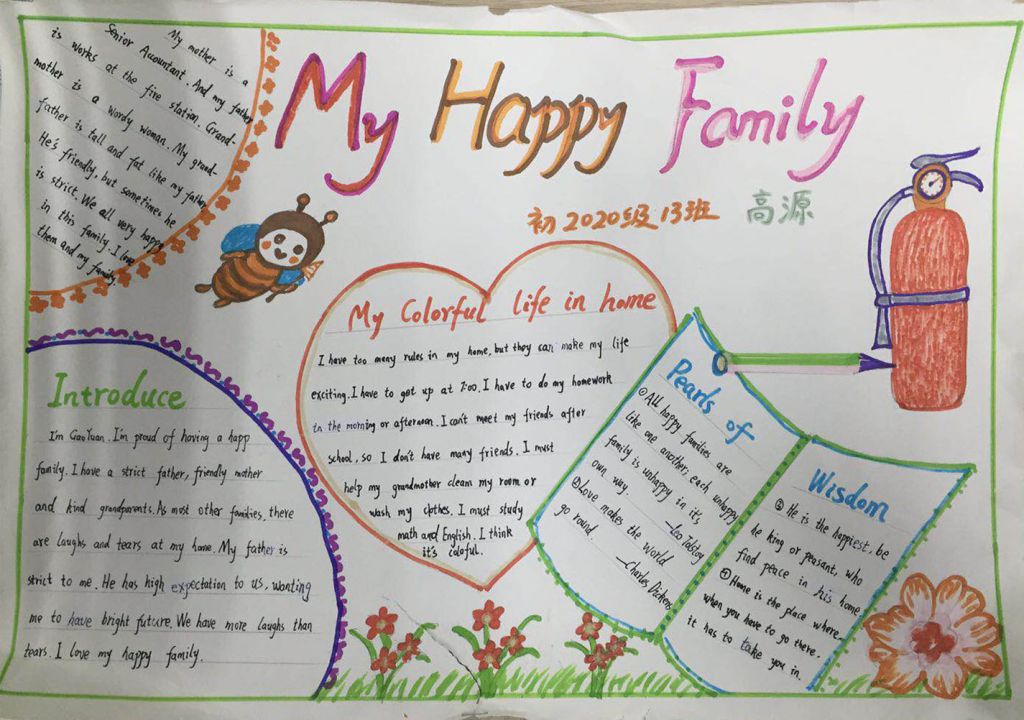 My Happy Family
初2020级13班 高源
My mother is a
Senior Accountant. And my father
is works at the fire station. Grand-
mother is a wordy woman. My grand-
father is tall and fat like my father
He's friendly, but sometimes he
is strict. We all very happy
in this family. I love
them and my family.
Introduce
I'm GaoYuan. I'm proud of having a happ
family. I have a strict father, friendly mother
and kind grandparents. As most other families, there
are laughs and tears at my home. My father is
strict to me. He has high expectation to us, wanting
me to have bright future. We have more laughs than
tears. I love my happy family.
My Colorful life in home
I have too many rules in my home, but they can make my life
exciting. I have to get up at 7:00. I have to do my homework
in the morning or afternoon. I can't meet my friends after
school, so I don't have many friends. I must
help my grandmother clean my room or
wash my clothes. I must study
math and English. I think
it's coloful.
Pearls of
①All happy families are
like one another; each unhappy
family is unhappy in it's
own way.
—Leo Tolstoy
②Love makes the world
go round.
—Charles Dickens
Wisdom
③ He is the happiest, be
he king or peasant, who
find peace in his home
④Home is the place where
when you have to go there.
it has to take you in.